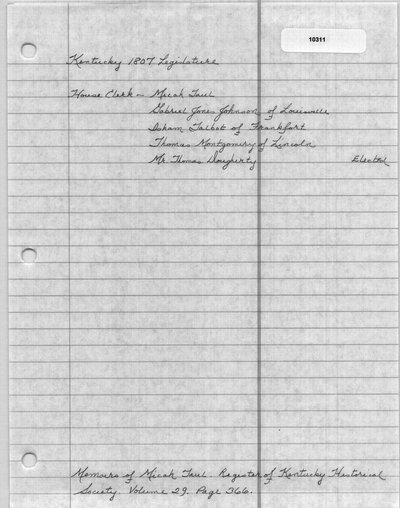 10311
Kentucky 1807 Legislature
House Clerk - Micah Taul
Gabriel Jones Johnson of Louisville
Isham Talbot of Frankfort
Thomas Montgomery of Lincoln
Mr Thomas Dougherty Elected
Memoirs of Micah Taul. Register of Kentucky Historical
Society. Volume 29. Page 366.